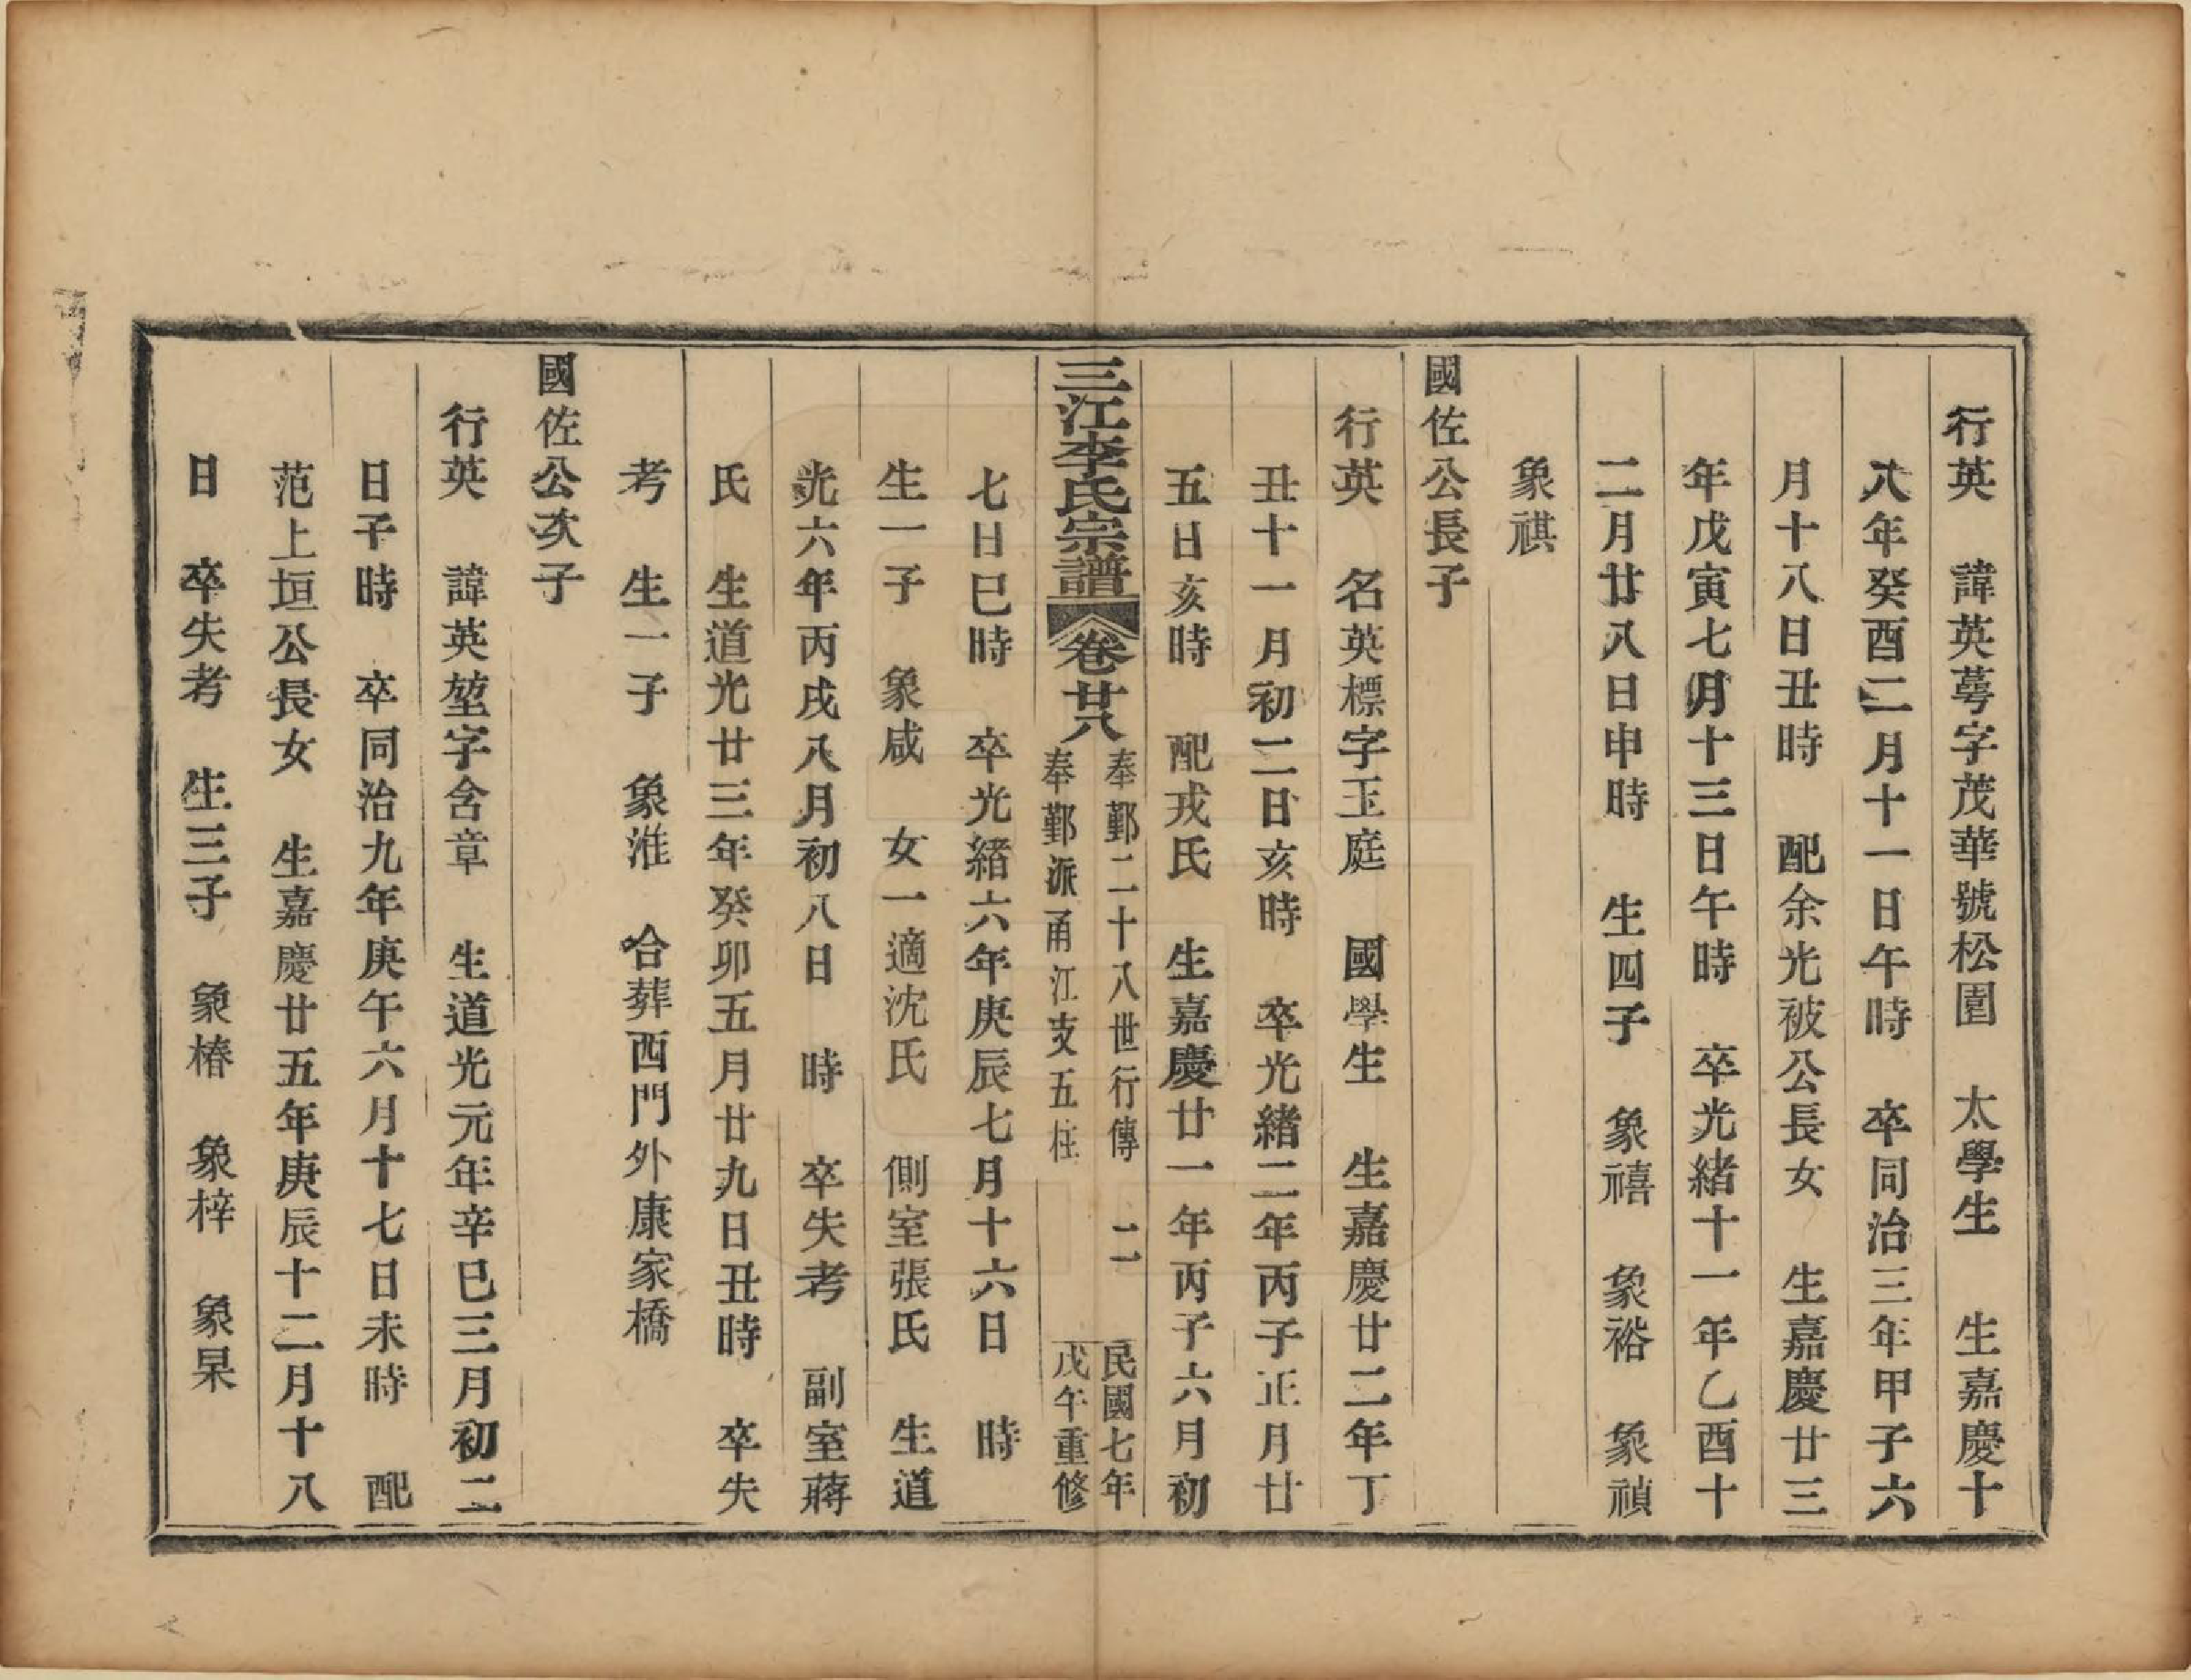 行英　諱英萼字茂華號松園　太學生　生嘉慶十
八年癸酉二月十一日午時　卒同治三年甲子六
月十八日丑時　配余光被公長女　生嘉慶廿三
年戊寅七月十三日午時　卒光緒十一年乙酉十
二月廿八日申時　生四子　象禧　象裕　象禎
象祺
國佐公長子
行英　名英標字玉庭　國學生　生嘉慶廿二年丁
丑十一月初二日亥時　卒光緒二年丙子正月廿
五日亥時　配戎氏　生嘉慶廿一年丙子六月初
三江李氏宗譜　卷廿八
奉鄞二十八世行傳　二
奉鄞派甬江支五柱
民國七年
戊午重修
七日巳時　卒光緒六年庚辰七月十六日　時
生一子　象咸　女一適沈氏　側室張氏　生道
光六年丙戌八月初八日　時　卒失考　副室蔣
氏　生道光廿三年癸卯五月廿九日丑時　卒失
考　生一子　象淮　合葬西門外康家橋
國佐公次子
行英　諱英堃字含章　生道光元年辛巳三月初二
日子時　卒同治九年庚午六月十七日未時　配
范上垣公長女　生嘉慶廿五年庚辰十二月十八
日　卒失考　生三子　象椿　象梓　象杲